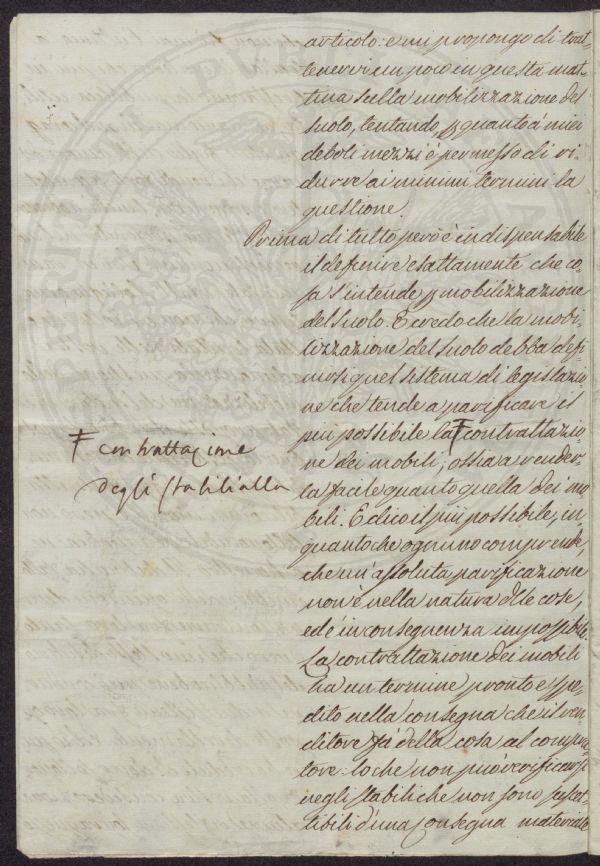 articolo: e mi propongo di trat-
tenervi un poco in questa mat-
tina sulla mobilizzazione del
suolo, tentando, p quanto ai miei
deboli mezzi è permesso di ri-
durre ai minimi termini la
questione.
Prima di tutto però è indispensabile
il definire esattamente che co-
sa s'intende p mobilizzazione
del suolo. E credo che la mobi-
lizzazione del suolo debba defi-
nirsi quel sistema di legislazio-
ne che tende a parificare il
più possibile la F contrattazio-
ne dei mobili, ossia a render-
la facile quanto quella dei mo-
bili. E dico il più possibile, in-
quantoche ognuno comprende,
che un'assoluta parificazione
non è nella natura delle cose,
ed è in conseguenza impossibile.
La contrattazione dei mobili
ha un termine pronto e spe-
dito nella consegna che il ven-
ditore fà della cosa al compra-
tore: lo che non può verificarsi
negli stabili che non sono suscet-
tibili d'una consegna materiale
F contrattazione
degli stabili alla